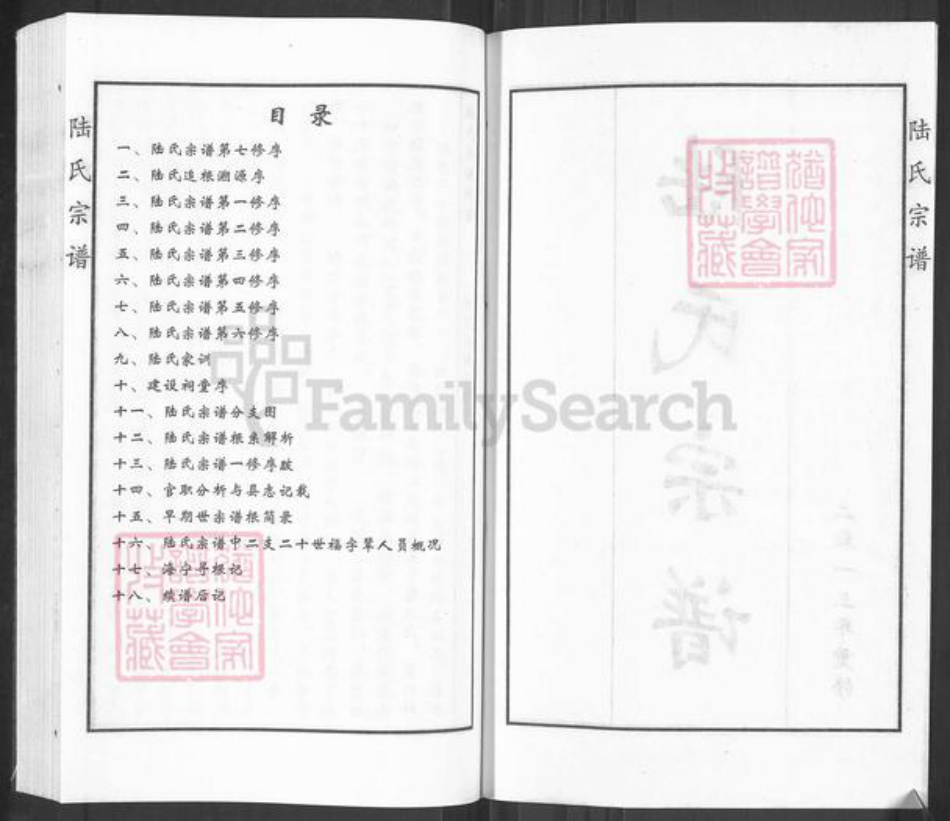 陆氏宗谱
目录
一、陆氏宗谱第七修序
二、陆氏追根溯源序
三、陆氏宗谱第一修序
四、陆氏宗谱第二修序
五、陆氏宗谱第三修序
六、陆氏宗谱第四修序
七、陆氏宗谱第五修序
八、陆氏宗谱第六修序
九、陆氏家训
十、建设祠堂序
十一、陆氏宗谱分支图
十二、陆氏宗谱根系解析
十三、陆氏宗谱一修序跋
十四、官职分析与县志记载
十五、早期世宗谱根简录
十六、陆氏宗谱中二支二十世福字辈人员概况
十七、海宁寻根记
十八、续谱后记
FamilySearch
陆氏宗谱
氏宗谱